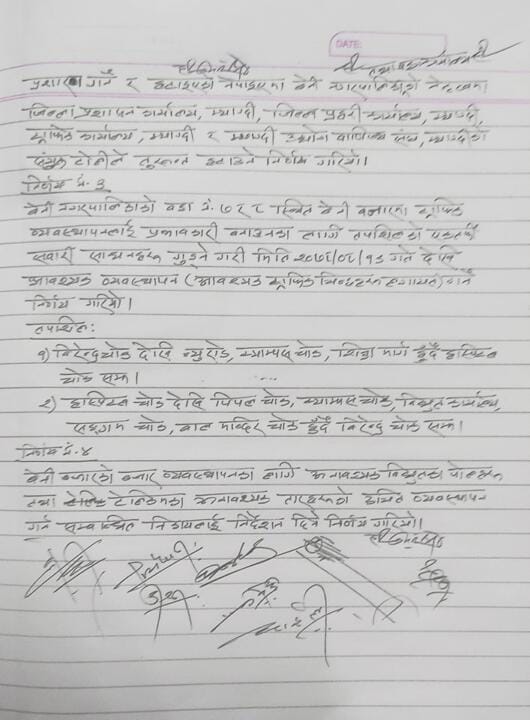 DATE:
प्रशारण गर्ने र हटाइएको नपाइएमा बेनी नगरपालिकाको नेतृत्वमा
जिल्ला प्रशासन कार्यालय, म्याग्दी, जिल्ला प्रहरी कार्यालय, म्याग्दी,
ट्राफिक कार्यालय, म्याग्दी र म्याग्दी उद्योग वाणिज्य संघ, म्याग्दीको
संयुक्त टोलीले तुरुन्त हटाउने निर्णय गरियो।
निर्णय नं. ३
बेनी नगरपालिकाको वडा नं. ७ र ८ स्थित बेनी बजारमा ट्राफिक
व्यवस्थापनलाई प्रभावकारी बनाउनका लागि तपशिलको एकतर्फी
सवारी साधनहरू गुड्ने गरी मिति २०७६/०८/१३ गते देखि
आवश्यक व्यवस्थापन (आवश्यक ट्राफिक चिन्हहरू लगायत) गर्ने
निर्णय गरियो।
तपशिल:
१) विरेन्द्र चोक देखि न्युरोड, क्याम्पस चोक, शिक्षा मार्ग हुँदै हस्पिटल
चोक सम्म।
२) हस्पिटल चोक देखि पिपल चोक, क्याम्पस चोक, विद्युत कार्यालय,
सङ्गम चोक, बाल मन्दिर चोक हुँदै विरेन्द्र चोक सम्म।
निर्णय नं. ४
बेनी बजारको बजार व्यवस्थापनका लागि अनावश्यक विद्युतका पोलहरू
तथा टेलिकमका अनावश्यक तारहरूको उचित व्यवस्थापन
गर्न सम्बन्धित निकायलाई निर्देशन दिने निर्णय गरियो।